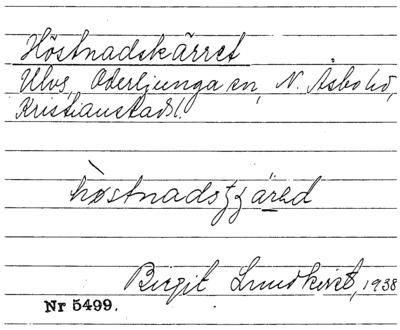 Höstnadskärret
Ulvs, Oderljunga sn, N. Åsbo hd,
Kristianstads l.
hòstnadsʒʒäred
Birgit Lundkvist, 1938
Nr 5499.